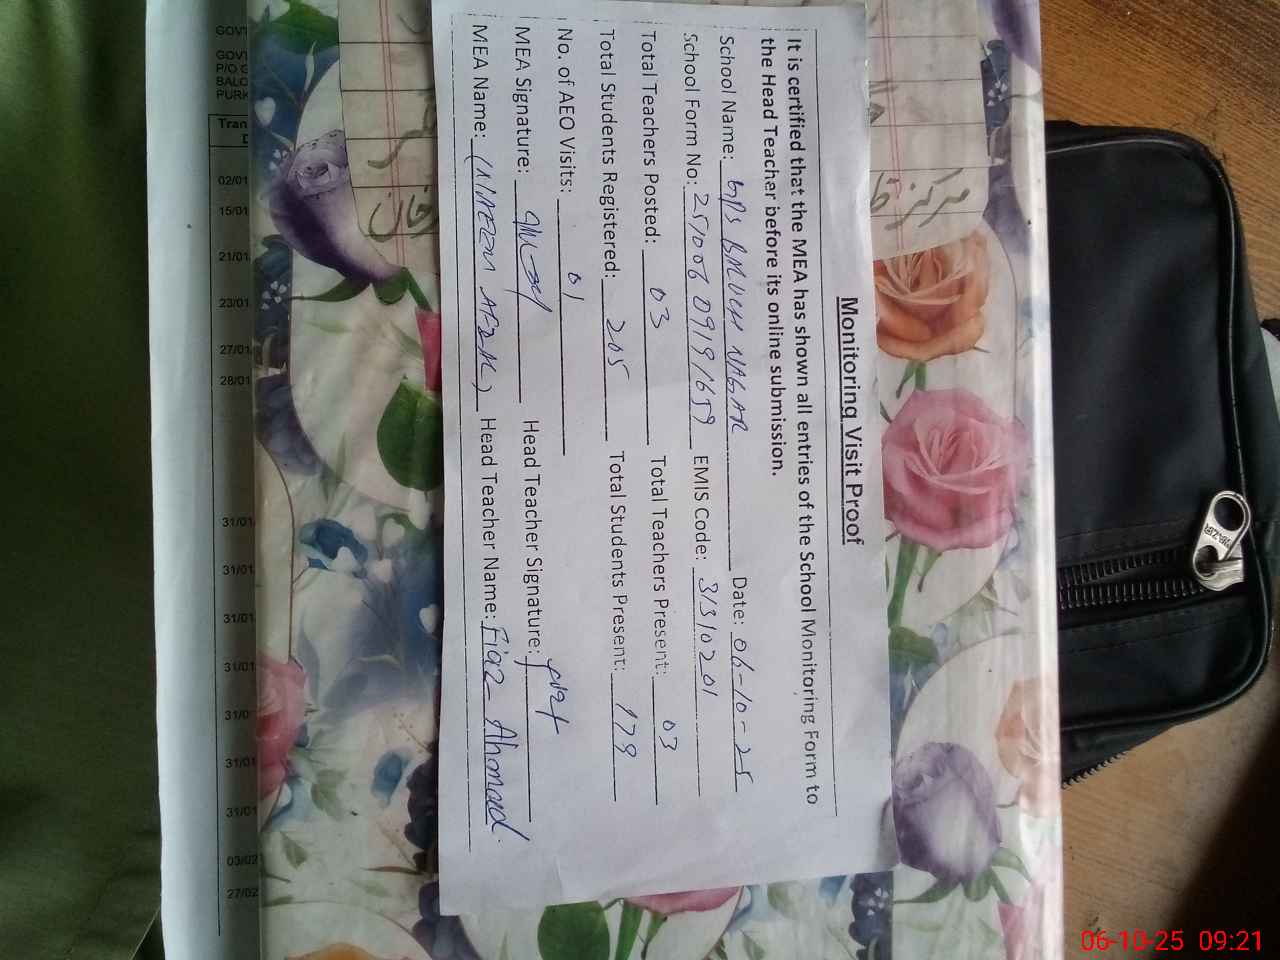 Monitoring Visit Proof
It is certified that the MEA has shown all entries of the School Monitoring Form to
the Head Teacher before its online submission.
School Name: GPS BALUCH NAGAR Date: 06-10-25
School Form No: 251006 0919 1659 EMIS Code: 31310201
Total Teachers Posted: 03 Total Teachers Present: 03
Total Students Registered: 205 Total Students Present: 179
No. of AEO Visits: 01
MEA Signature: Head Teacher Signature:
MEA Name: Head Teacher Name: Fiaz Ahmad
GOVT
GOVT
P/O G
BALO
PURK
Tran
D
02/01
15/01
21/01
23/01
27/01
28/01
31/01
31/01
31/01
31/01
31/0
31/01
31/01
03/02
27/02
مرکز
06-10-25 09:21